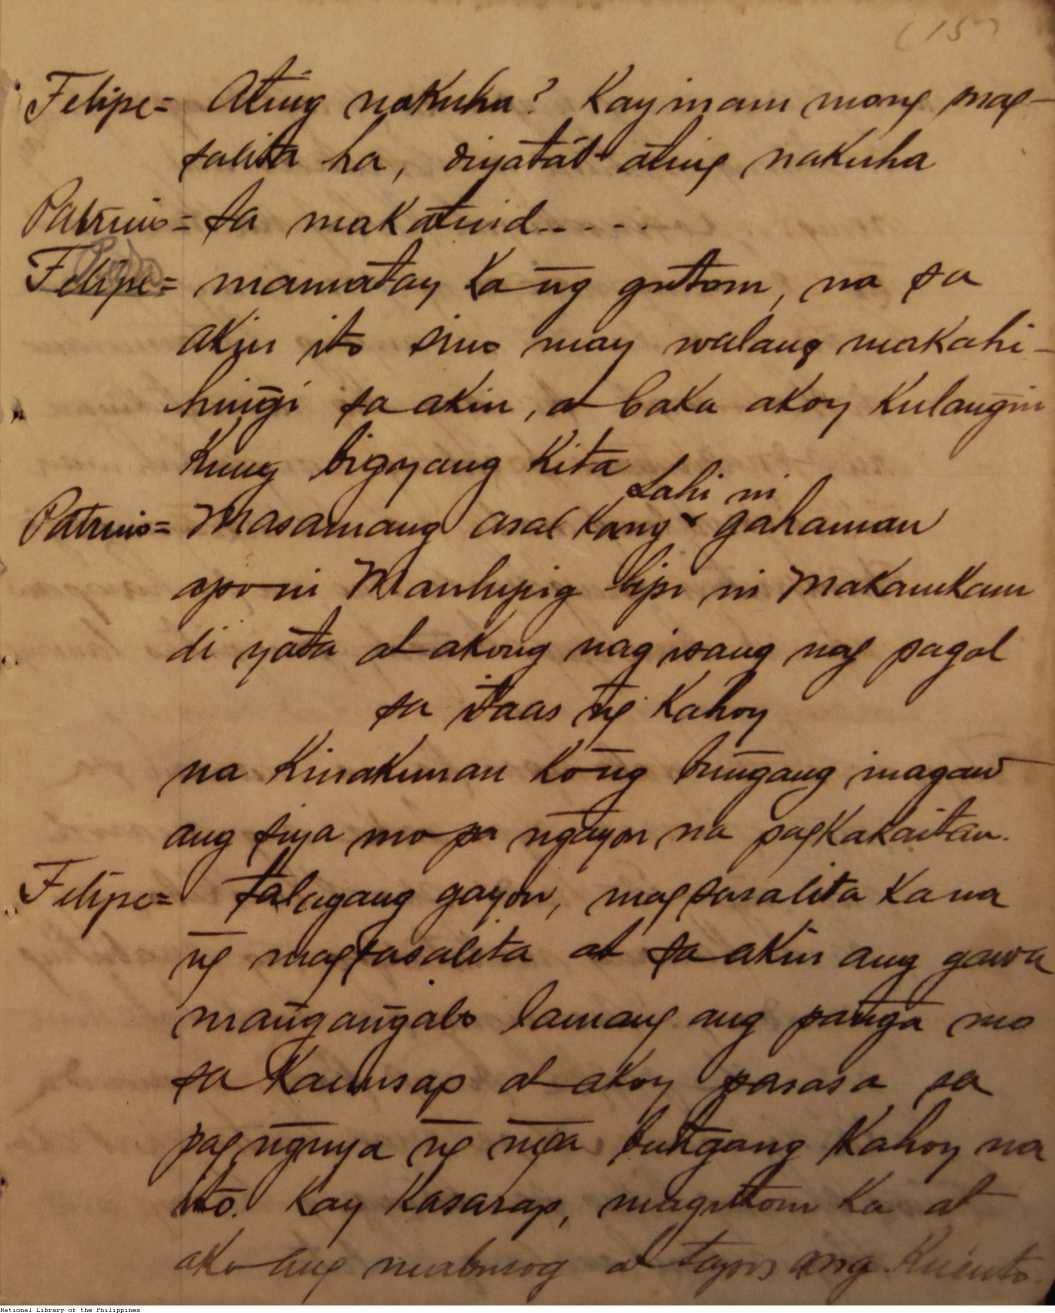 (15)
Felipe= Ating nakuha? Kay inam mong mag-
salita ha, diyata't ating nakuha
Patricio= sa makatuid.....
Felipe= mamatay ka n͠g gutom, na sa
akin ito sino may walang makahi-
hin͠gi sa akin, at baka akoy kulan͠gin
kung bigayang kita
Patricio= Masamang asal kang lahi ni gahaman
apo ni Manlupig lipi ni Makamkam
di yata at akong nag isang nag pagal
sa itaas n͠g kahoy
na kinakunan ko n͠g bun͠gang inagaw
ang siya mo pa n͠gayon na pagkakaitan.
Felipe= talagang gayon, magsasalita ka na
n͠g magsasalita at sa akin ang gawa
man͠gan͠galo lamang ang pan͠ga mo
sa kauusap at akoy sasasa sa
pag n͠guya n͠g m͠ga bun͠gang kahoy na
ito. Kay kasarap, magutom ka at
ako ang mabusog at tayoy ang kuento.
National Library of the Philippines